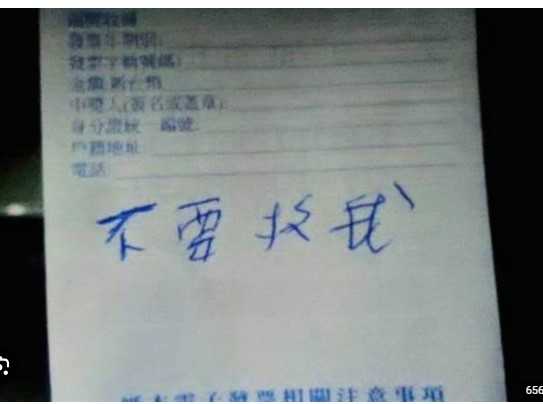 領獎收據
發票年期別:
發票字軌號碼:
金額 新台幣
中獎人(簽名或蓋章):
身分證統一編號:
戶籍地址
電話
不要 我
紙本電子發票相關注意事項
656